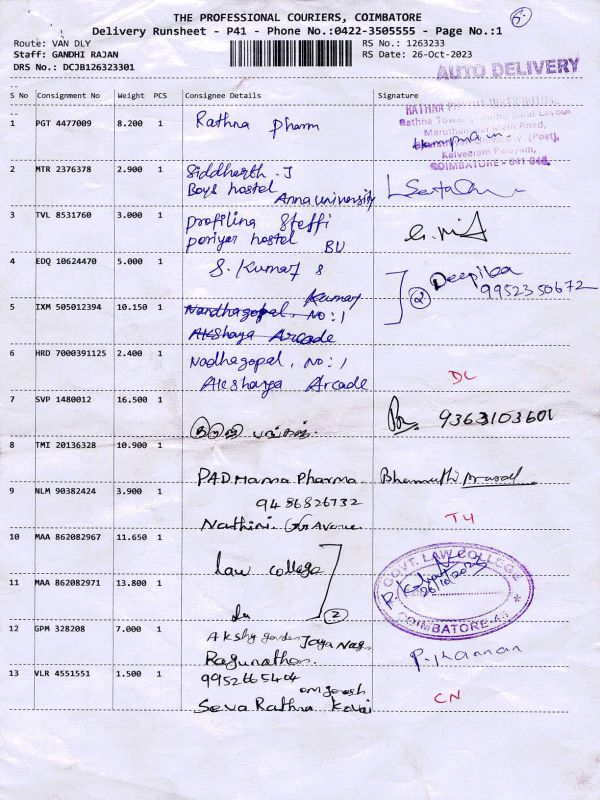 THE PROFESSIONAL COURIERS, COIMBATORE
Delivery Runsheet - P41 - Phone No.:0422-3505555 - Page No.:1
Route: VAN DLY
RS No.: 1263233
Staff: GANDHI RAJAN
RS Date: 26-Oct-2023
DRS No.: DCJB126323301
AUTO DELIVERY
S No Consignment No Weight PCS Consignee Details Signature
1 PGT 4477009 8.200 1 Rathna pharm
Maruthamalai Main Road,
Kalveeram Palayam,
COIMBATORE - 641 046.
2 MTR 2376378 2.900 1 Siddharth . J
Boys hostel
Anna university
3 TVL 8531760 3.000 1 profilina Steffi
periyar hostel BU
4 EDQ 10624470 5.000 1 S. Kumar s
Kumar
② Deepika
9952350672
5 IXM 505012394 10.150 1 Nandhagopal, NO: 1
Akshaya Arcade
6 HRD 7000391125 2.400 1 Nadhagopal, NO: 1
Akshaya Arcade
DL
7 SVP 1480012 16.500 1
9363103601
8 TMI 20136328 10.900 1 PADMana Pharma
9486826732
9 NLM 90382424 3.900 1
Nathini Avenue
T4
10 MAA 862082967 11.650 1 Law college
GOVT. LAW COLLEGE
26/10/2023
COIMBATORE-46
11 MAA 862082971 13.800 1
②
12 GPM 328208 7.000 1 Jaya Nagr
Ragunathan.
P. Kannan
13 VLR 4551551 1.500 1 9952665404
Seva Rathna Kovai
CN